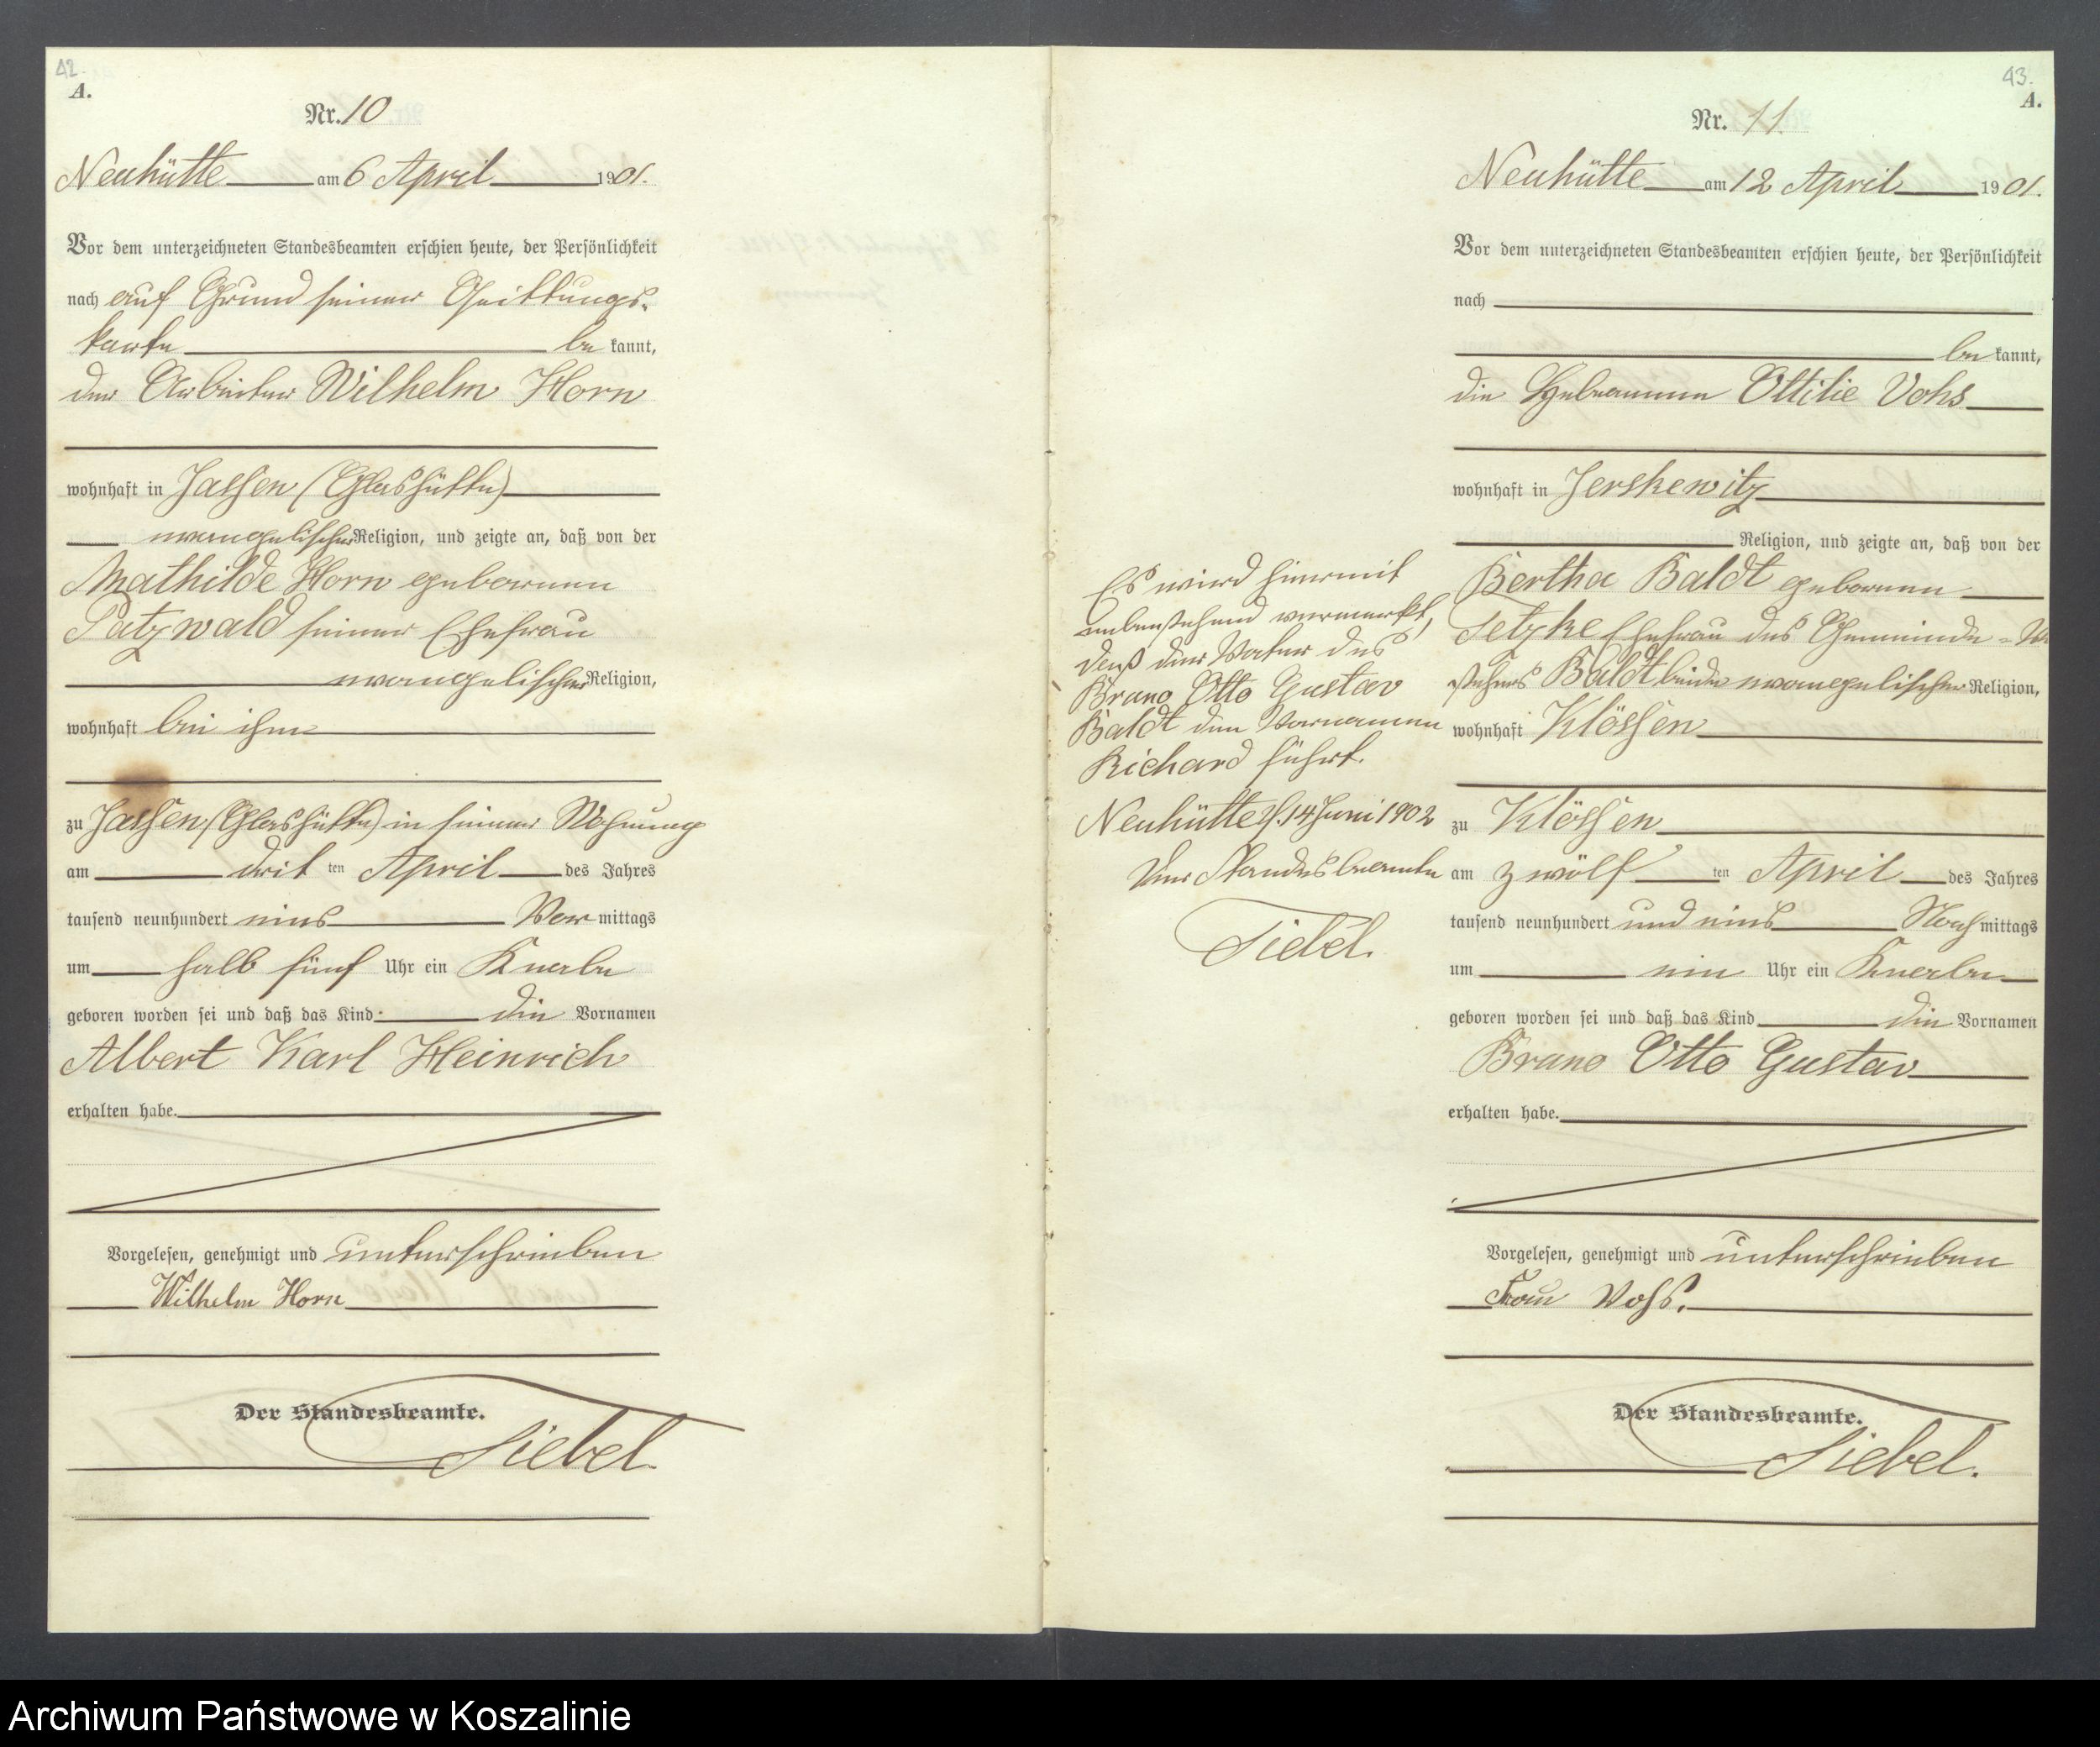 42.
A.
Nr. 10
Neuhütte am 6 April 1901.
Vor dem unterzeichneten Standesbeamten erschien heute, der Persönlichkeit
nach auf Grund seiner Quittungs-
karte be kannt,
der Arbeiter Wilhelm Horn
wohnhaft in Jassen (Glashütte)
evangelischer Religion, und zeigte an, daß von der
Mathilde Horn geborenen
Patzwald seiner Ehefrau
evangelischer Religion,
wohnhaft bei ihm
zu Jassen (Glashütte) in seiner Wohnung
am drit ten April des Jahres
tausend neunhundert eins Vor mittags
um halb fünf Uhr ein Knabe
geboren worden sei und daß das Kind die Vornamen
Albert Karl Heinrich
erhalten habe.
Vorgelesen, genehmigt und unterschrieben
Wilhelm Horn
Der Standesbeamte.
Siebel.
43.
A.
Nr. 11.
Neuhütte am 12 April 1901.
Vor dem unterzeichneten Standesbeamten erschien heute, der Persönlichkeit
nach
be kannt,
die Hebeamme Ottilie Vohs
wohnhaft in Jerskewitz
Religion, und zeigte an, daß von der
Bertha Baldt geborenen
Tetzke Ehefrau des Gemeinde-Vor
stehers Baldt beide evangelischer Religion,
wohnhaft Klössen
zu Klössen
am zwölf ten April des Jahres
tausend neunhundert und eins Nach mittags
um ein Uhr ein Knabe
geboren worden sei und daß das Kind die Vornamen
Bruno Otto Gustav
erhalten habe.
Vorgelesen, genehmigt und unterschrieben
Frau Vohs.
Der Standesbeamte.
Siebel.
Es wird hiermit
nebenstehend vermerkt,
daß der Vater des
Bruno Otto Gustav
Baldt den Vornamen
Richard führt.
Neuhütte 14 Juni 1902
Der Standesbeamte
Siebel.
Archiwum Państwowe w Koszalinie